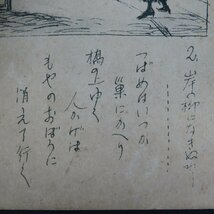 2. 岸の柳になきぬれて
つばめはいつか
巣にかへり
橋の上ゆく
人かげは
もやのおぼろに
消えて行く